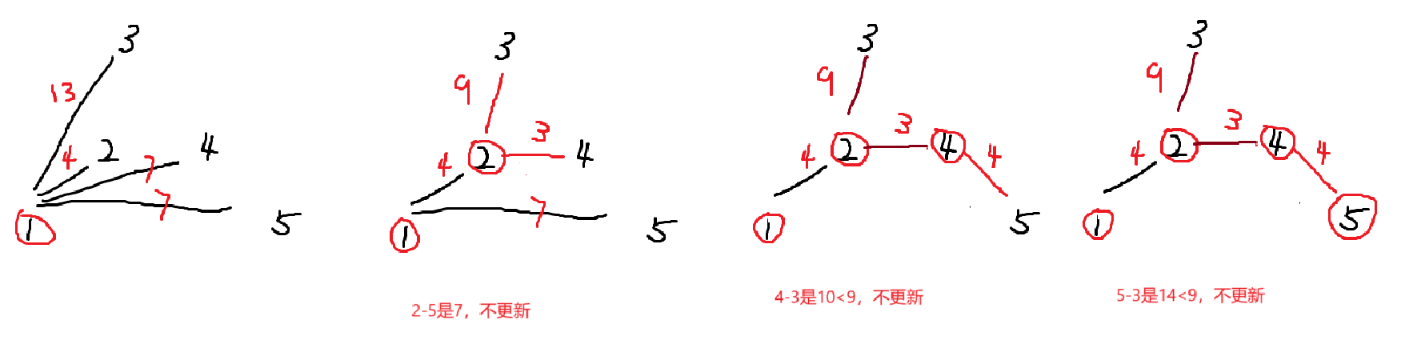 3
13
4
2
7
4
7
1
5
3
9
3
4
2
4
7
1
5
2-5是7，不更新
3
9
3
4
2
4
4
1
5
4-3是10<9，不更新
3
9
3
4
2
4
4
1
5
5-3是14<9，不更新